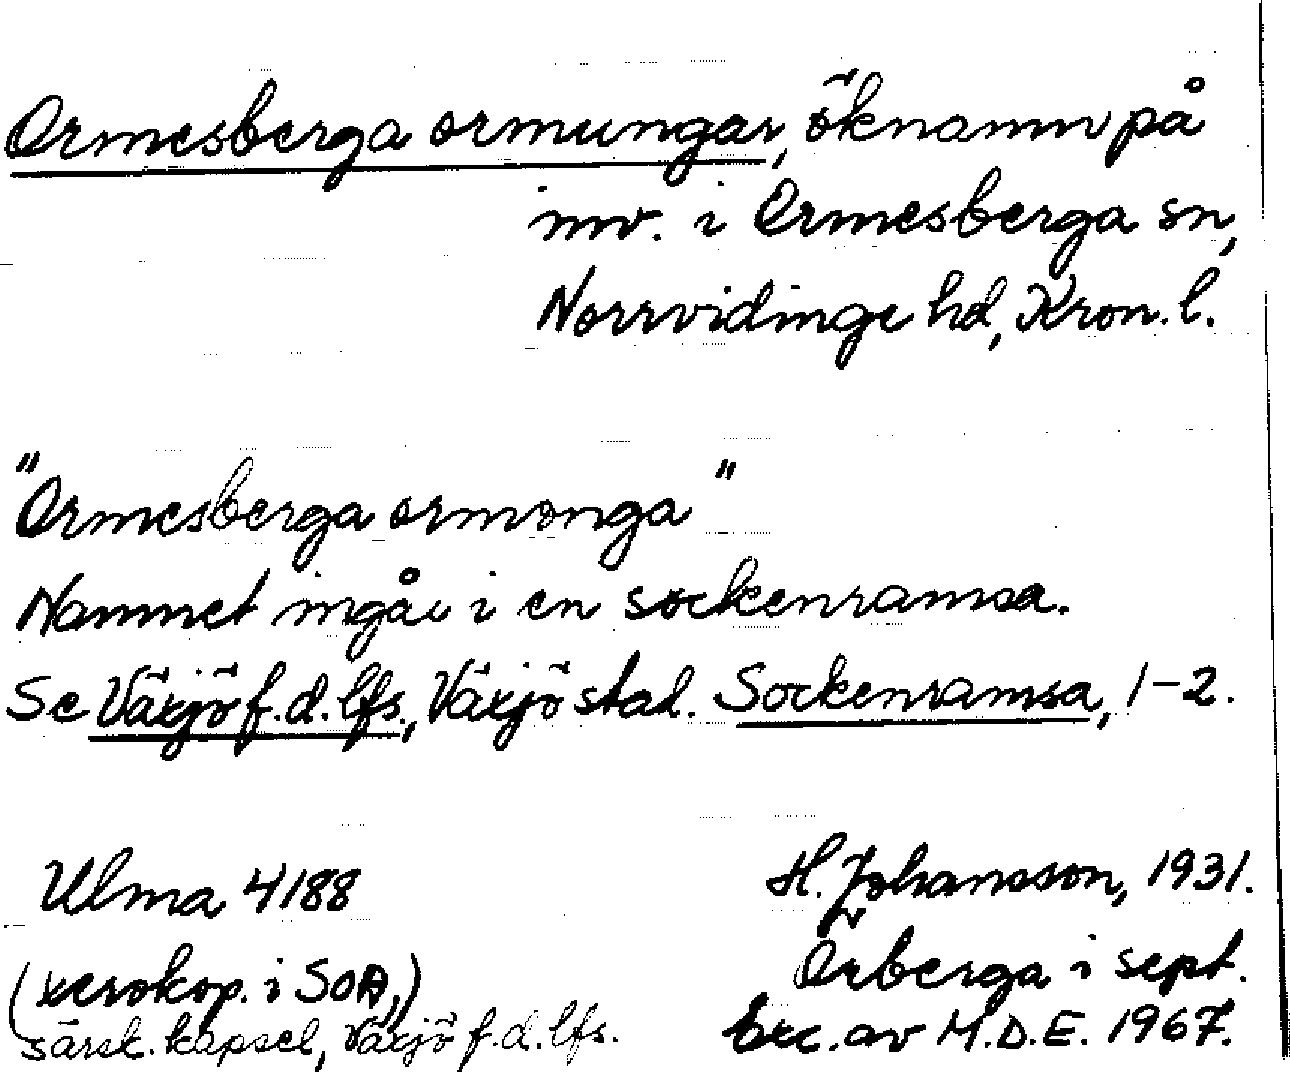 Ormesberga ormungar, öknamn på
inv. i Ormesberga sn,
Norrvidinge hd, Kron. l.
"Ormesberga ormonga"
Namnet ingår i en sockenramsa.
Se Växjö f.d. lfs., Växjö stad. Sockenramsa, 1-2.
Ulma 4188 H. Johansson, 1931.
(xerokop. i SOA,) Örberga i sept.
särsk. kapsel, Växjö f.d. lfs. Exc. av M.D.E. 1967.